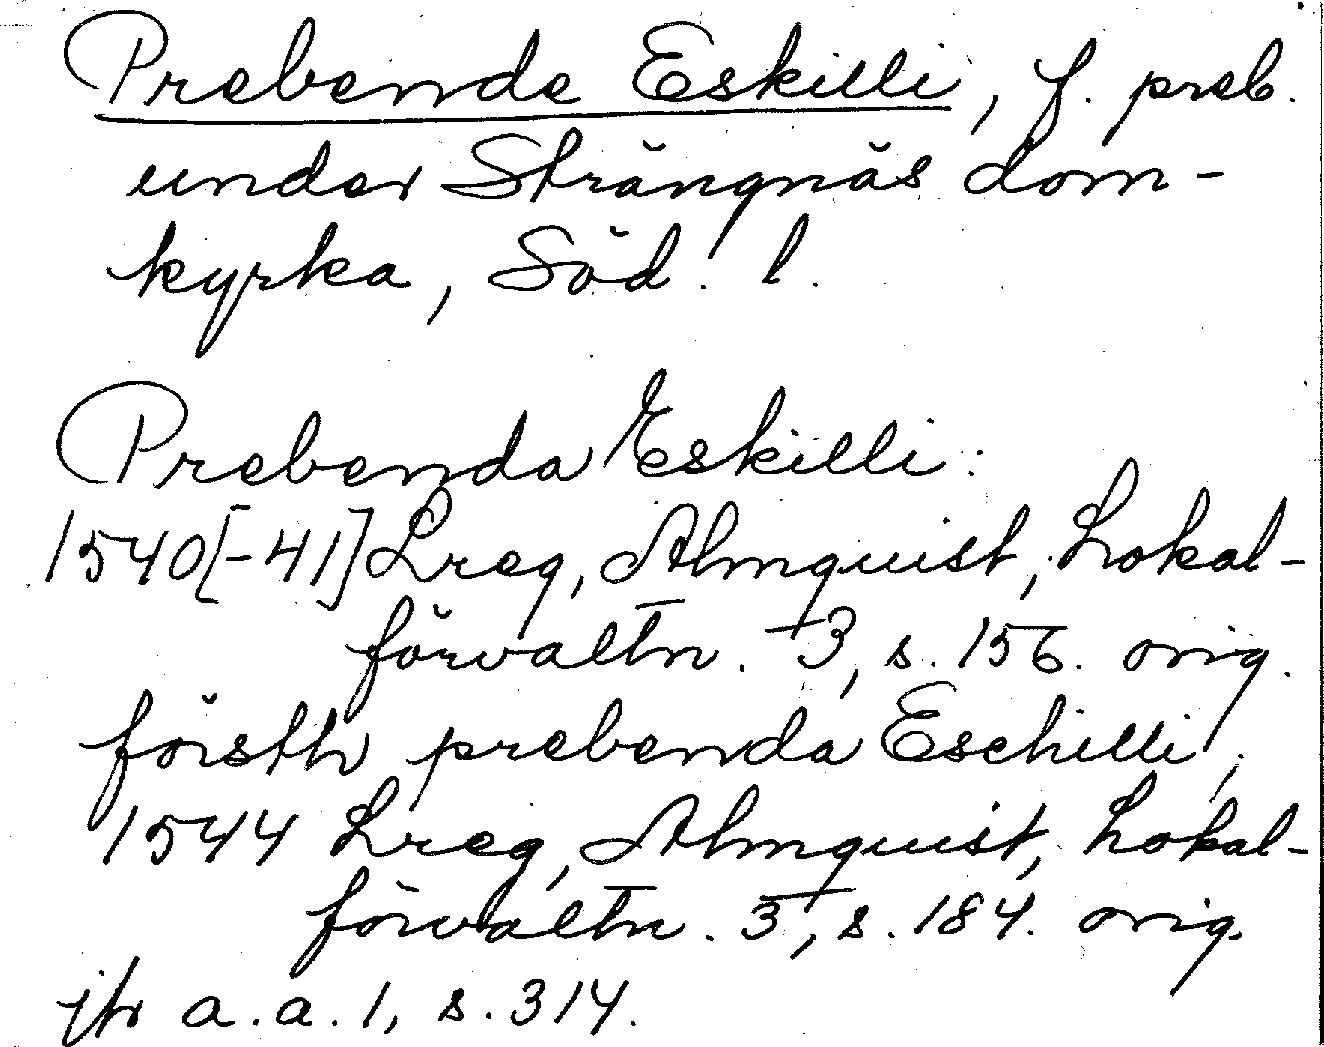 Prebende Eskilli, f. preb.
under Strängnäs dom-
kyrka, Söd. l.
Prebenda Eskilli:
1540[-41] Lreg, Almquist, Lokal-
förvaltn. 3, s. 156. orig.
försth prebenda Eschilli,
1544 Lreg, Almquist, Lokal-
förvaltn. 3, s. 184. orig.
jfr a.a. 1, s. 314.